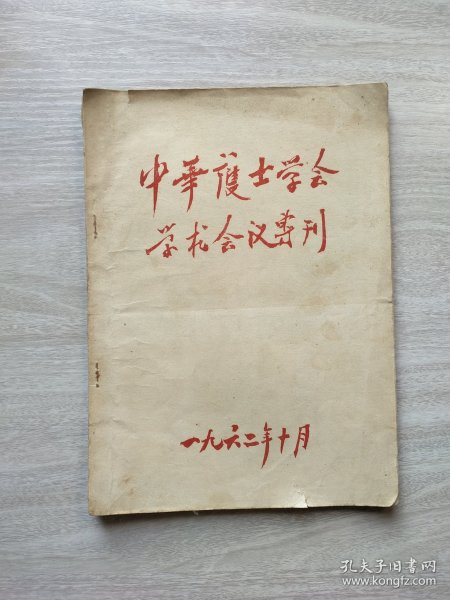 中華護士学会
学术会议専刊
一九六二年十月
孔夫子旧书网
www.kongfz.com